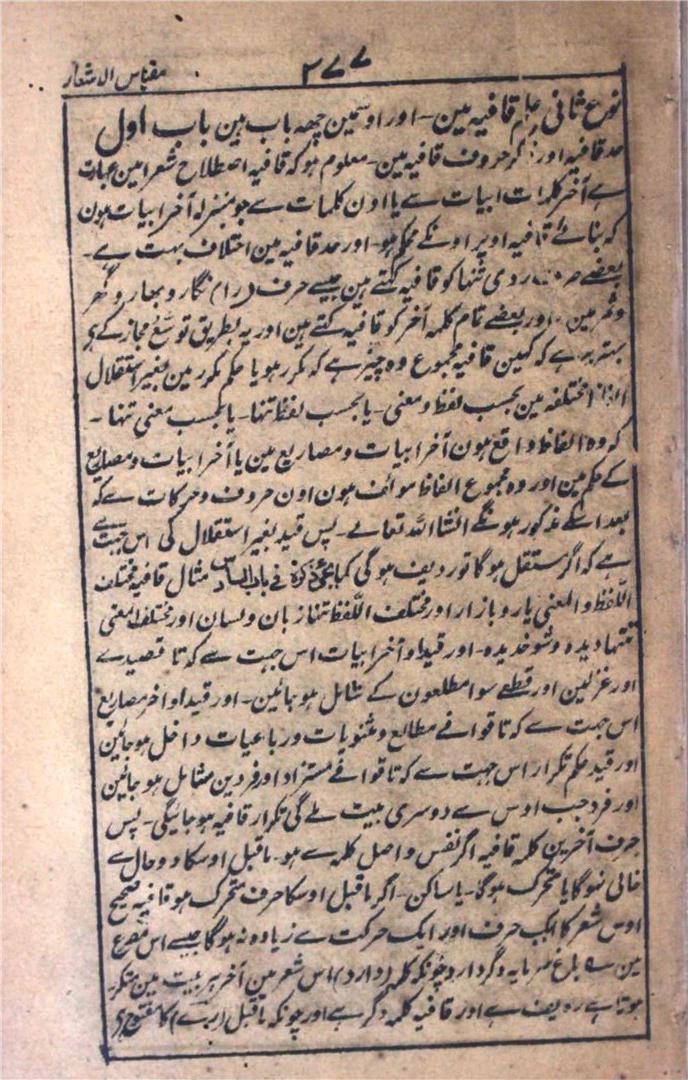 مقیاس الاشعار
۲۷۷
نوع ثانی علم قافیہ مین - اور اوسمین چھہ باب ہین باب اول
حد قافیہ اور ذکر حروف قافیہ مین - معلوم ہو کہ قافیہ اصطلاح شعرا مین عبارت
ہے آخر کلمات ابیات سے یا اون کلمات سے جو بمنزلہ آخر ابیات ہون
کہ بنائے قافیہ اوپر اونکے محکم ہو - اور حد قافیہ مین اختلاف بہت ہے -
بعضے حرف روی تنہا کو قافیہ کہتے ہین جیسے حرف (را) نگار و بہار و گہر
و ثمر مین - اور بعضے تمام کلمہ آخر کو قافیہ کہتے ہین اور یہ بطریق توسع مجاز کے ہی
بہتر یہ ہے کہ کہین قافیہ مجموع وہ چیز ہے کہ مکرر ہو یا حکم مکرر مین بغیر استقلال
الفاظ مختلفہ مین بحسب لفظ و معنی - یا بحسب لفظ تنہا - یا بحسب معنی تنہا -
کہ وہ الفاظ واقع ہون آخر ابیات و مصاریع مین یا آخر ابیات و مصاریع
کے حکم مین اور وہ مجموع الفاظ موالف ہون اون حروف و حرکات سے کہ
بعد اسکے مذکور ہونگے انشاء اللہ تعالے - پس قید بغیر استقلال کی اس جہت سے
ہے کہ اگر مستقل ہوگا تو ردیف ہوگی کما ذکرہ فے باب السادس مثال قافیہ مختلف
اللفظ و المعنی یار و بازار اور مختلف اللفظ تنہا زبان و لسان اور مختلف المعنی
تنہا دیدہ و شوخدیدہ - اور قید اواخر ابیات اس جہت سے کہ تا قصیدے
اور غزلین اور قطعے سوا مطلعون کے شامل ہوجائین - اور قید اواخر مصاریع
اس جہت سے کہ تا قوافے مطالع و مثنویات و رباعیات داخل ہوجائین
اور قید حکم تکرار اس جہت سے کہ تا قوافے مستزاد اور فردین شامل ہوجائین
اور فرد جب اوس سے دوسری بیت ملے گی تکرار قافیہ ہوجائیگی - پس
حرف آخرین کلمہ قافیہ اگر نفس و اصل کلمہ سے ہو - ماقبل اوسکا دو حال سے
خالی نہوگا یا متحرک ہوگا - یا ساکن - اگر ماقبل اوسکا حرف متحرک ہو قافیہ صحیح
اوس شعر کا ایک حرف اور ایک حرکت سے زیادہ نہ ہوگا جیسے اس مصرع
مین ے باغ سرمایہ دگر دارد چونکہ کلمہ (دارد) اس شعر مین آخر ہر بیت مین متکرر
ہوتا ہے ردیف ہے اور قافیہ کلمہ دگر ہے اور چونکہ ماقبل (رے) کا مفتوح ہی